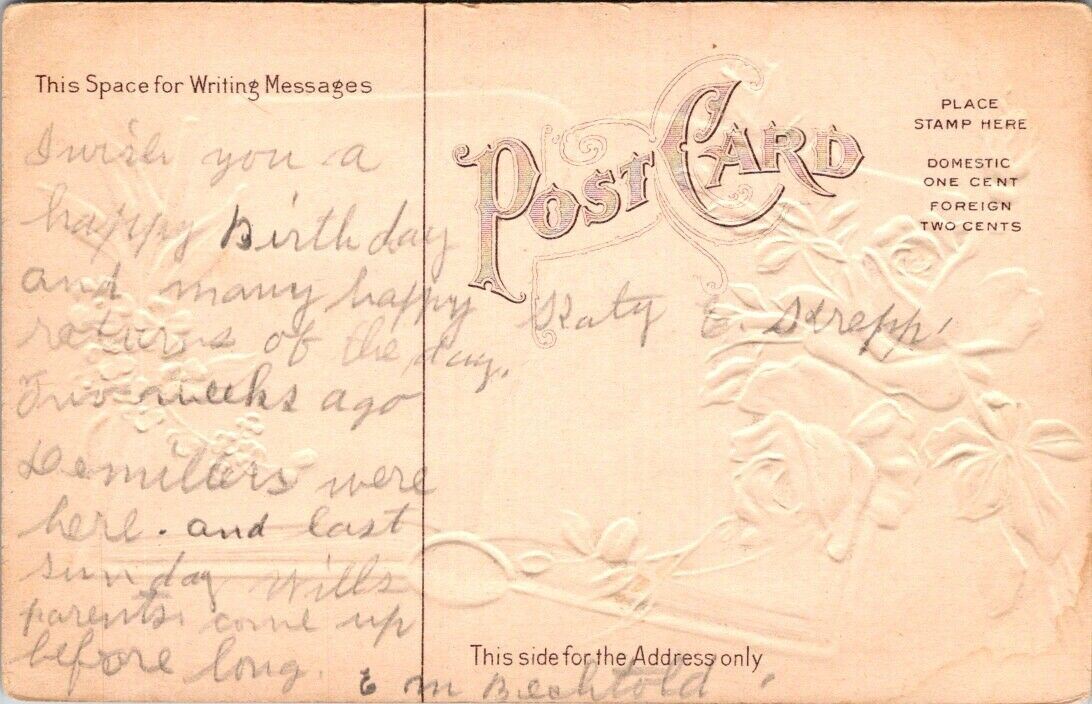 This Space for Writing Messages
I wish you a
happy Birthday
and many happy
returns of the day.
Two weeks ago
Demillers were
here. and last
sunday Wills
parents. come up
before long.
E M Bechtold
POST CARD
PLACE
STAMP HERE
DOMESTIC
ONE CENT
FOREIGN
TWO CENTS
Katy E. Strepp
This side for the Address only